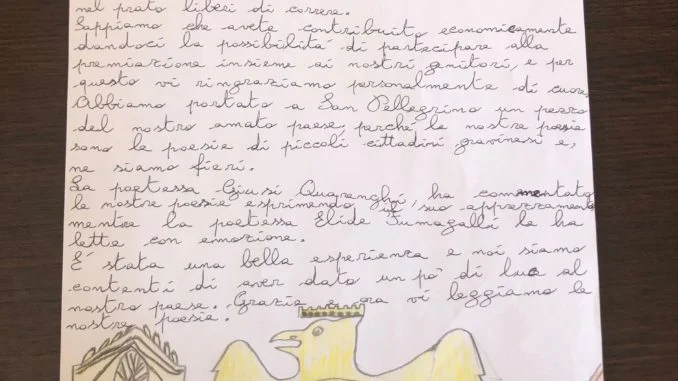 nel prato liberi di correre.
Sappiamo che avete contribuito economicamente
dandoci la possibilità di partecipare alla
premiazione insieme ai nostri genitori, e per
questo vi ringraziamo personalmente di cuore.
Abbiamo portato a San Pellegrino un pezzo
del nostro amato paese, perché le nostre poesie
sono le poesie di piccoli cittadini gravinesi e,
ne siamo fieri.
La poetessa Giusi Quarenghi, ha commentato
le nostre poesie esprimendo il suo apprezzamento
mentre la poetessa Elide Fumagalli le ha
lette con emozione.
É stata una bella esperienza e noi siamo
contenti di aver dato un pò di luce al
nostro paese. Grazie e ora vi leggiamo le
nostre poesie.